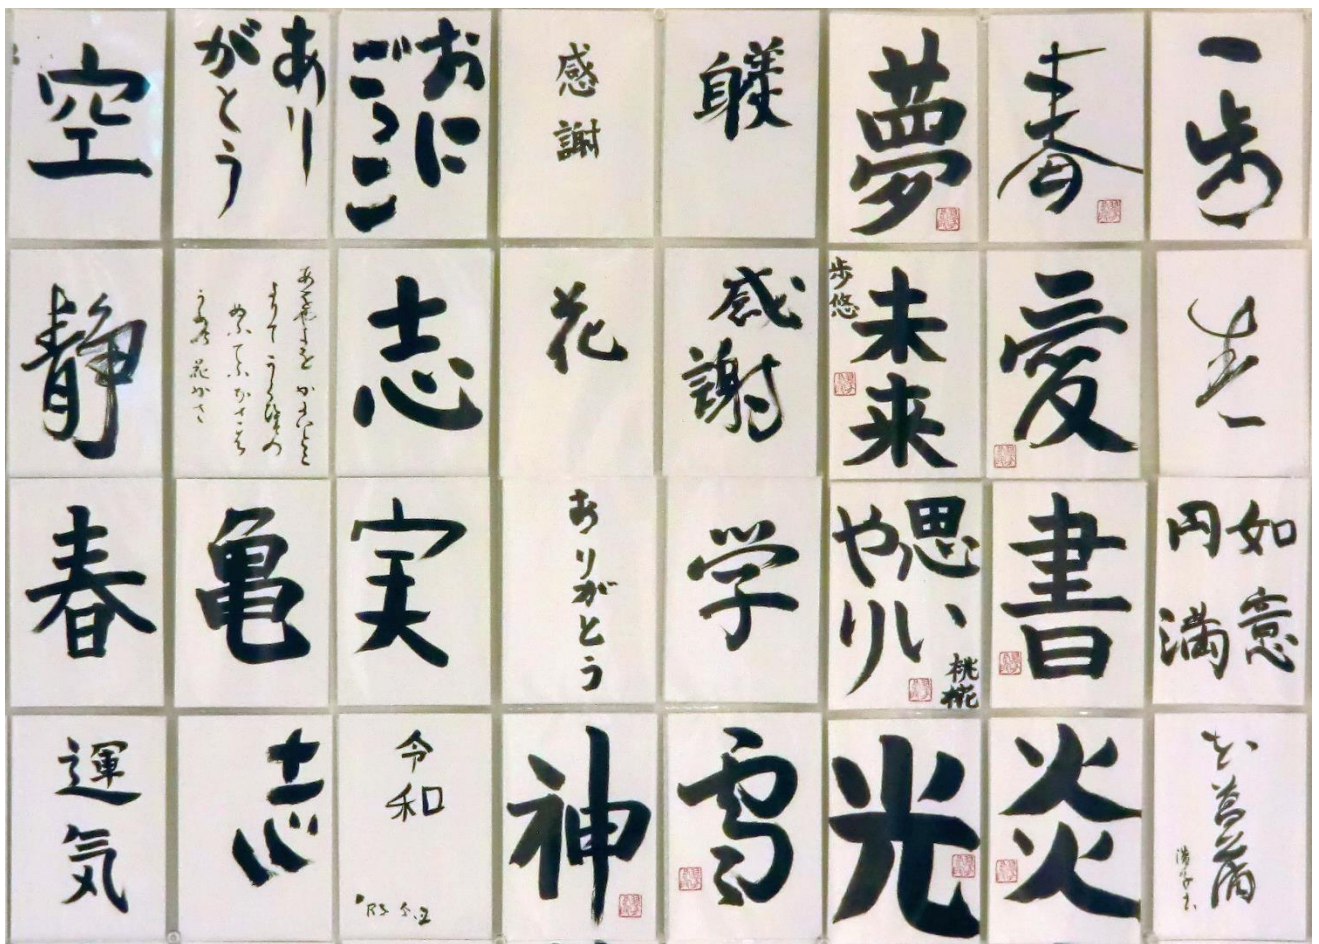 空
ありがとう
おにごっこ
感謝
躾
夢
春
一歩
静
志
花
感謝
未来
歩悠
愛
春
亀
実
ありがとう
学
思いやり
桃椛
書
如意円満
運気
志
令和
神
雪
光
炎